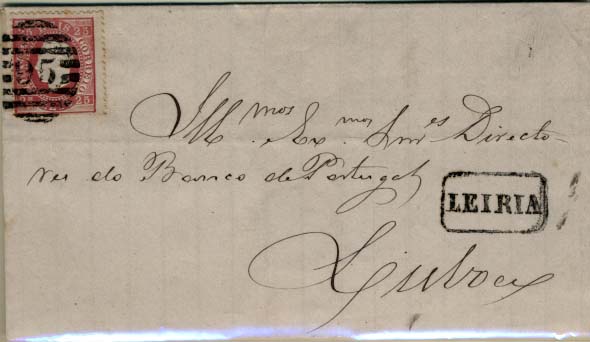 25 25
CORREIO
Ill.mos Ex.mos Snres Directo-
res do Banco de Portugal
LEIRIA
Lisboa